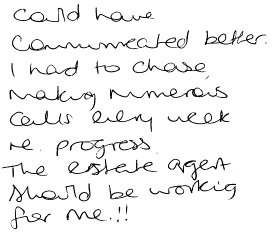 Could have
Communicated better.
I had to chase,
making numerous
calls every week
re. progress.
The estate agent
should be working
for me.!!